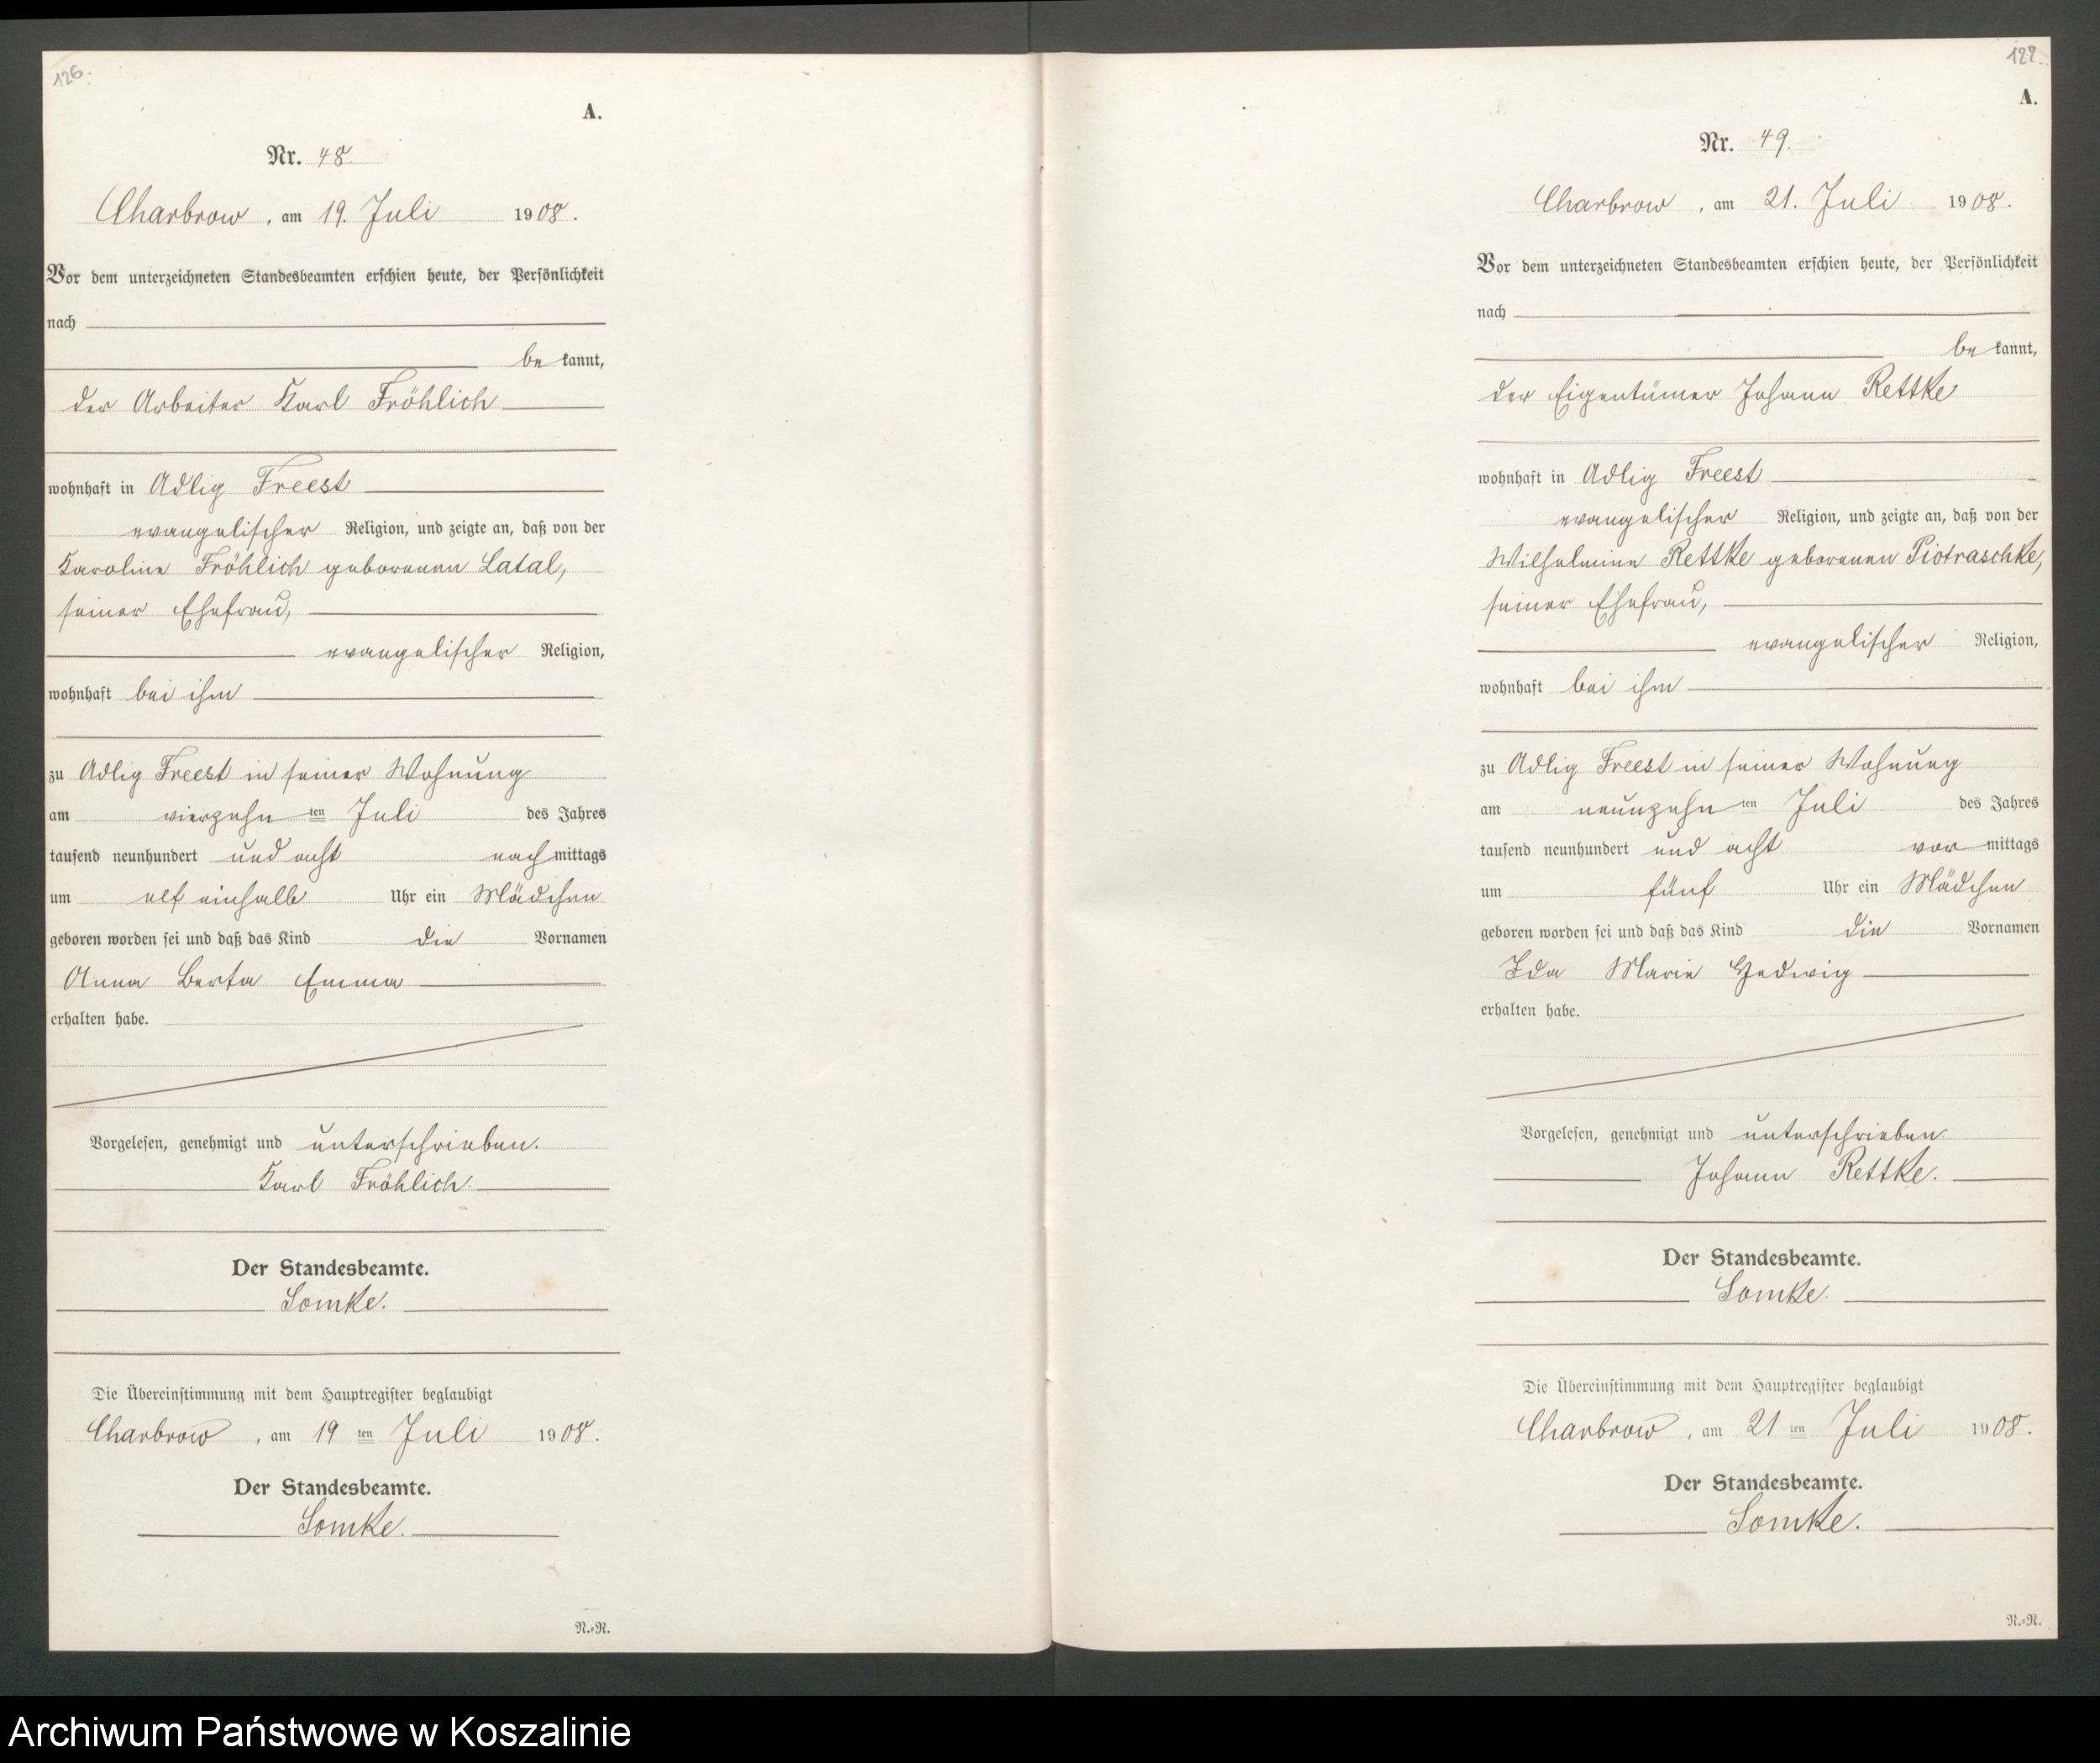 126.
A.
Nr. 48.
Charbrow, am 19. Juli 1908.
Vor dem unterzeichneten Standesbeamten erschien heute, der Persönlichkeit
nach
be kannt,
der Arbeiter Karl Fröhlich
wohnhaft in Adlig Freest
evangelischer Religion, und zeigte an, daß von der
Karoline Fröhlich geborenen Latal,
seiner Ehefrau,
evangelischer Religion,
wohnhaft bei ihm
zu Adlig Freest in seiner Wohnung
am vierzehn ten Juli des Jahres
tausend neunhundert und acht nach mittags
um elf einhalb Uhr ein Mädchen
geboren worden sei und daß das Kind die Vornamen
Anna Berta Emma
erhalten habe.
Vorgelesen, genehmigt und unterschrieben.
Karl Fröhlich.
Der Standesbeamte.
Somke.
Die Übereinstimmung mit dem Hauptregister beglaubigt
Charbrow, am 19 ten Juli 1908.
Der Standesbeamte.
Somke.
N.=R.
A.
Nr. 49.
Charbrow, am 21. Juli 1908.
Vor dem unterzeichneten Standesbeamten erschien heute, der Persönlichkeit
nach
be kannt,
der Eigentümer Johann Rettke
wohnhaft in Adlig Freest
evangelischer Religion, und zeigte an, daß von der
Wilhelmine Rettke geborenen Piotraschke,
seiner Ehefrau,
evangelischer Religion,
wohnhaft bei ihm
zu Adlig Freest in seiner Wohnung
am neunzehn ten Juli des Jahres
tausend neunhundert und acht vor mittags
um fünf Uhr ein Mädchen
geboren worden sei und daß das Kind die Vornamen
Ida Marie Hedwig
erhalten habe.
Vorgelesen, genehmigt und unterschrieben
Johann Rettke.
Der Standesbeamte.
Somke.
Die Übereinstimmung mit dem Hauptregister beglaubigt
Charbrow, am 21 ten Juli 1908.
Der Standesbeamte.
Somke.
N.=R.
Archiwum Państwowe w Koszalinie